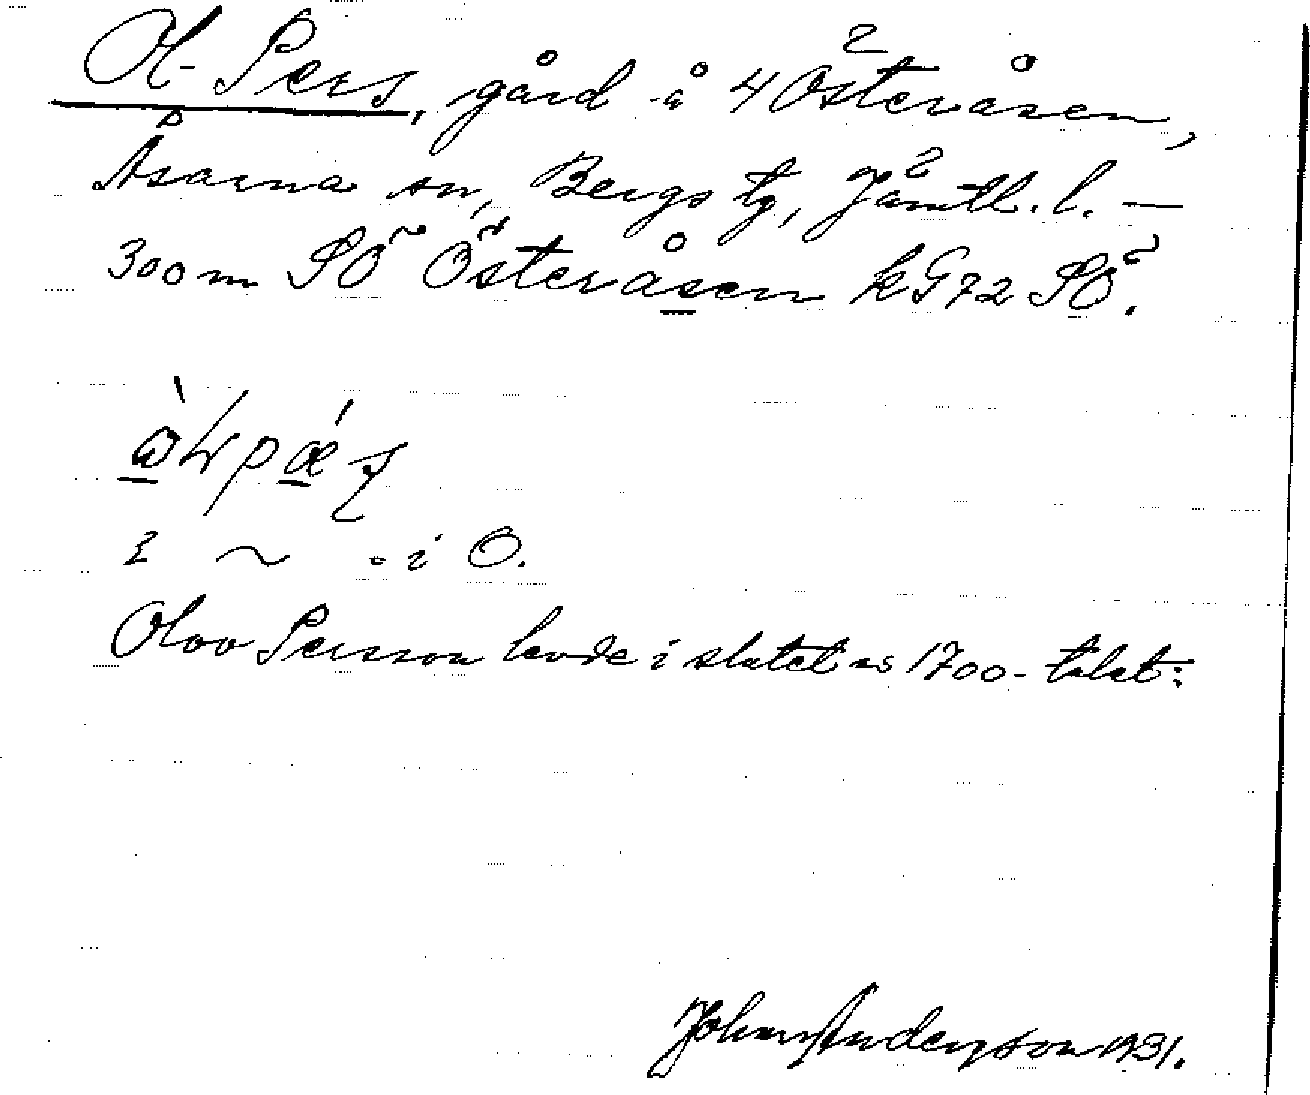 Ol-Pers, gård å 4 Österåsen,
Åsarna sn, Bergs tg, Jämtl. l. —
300 m SÖ Österåsen kG72 SÖ.
i ~ - i Ö.
Olov Persson levde i slutet av 1700-talet.
John Anderson 1931.